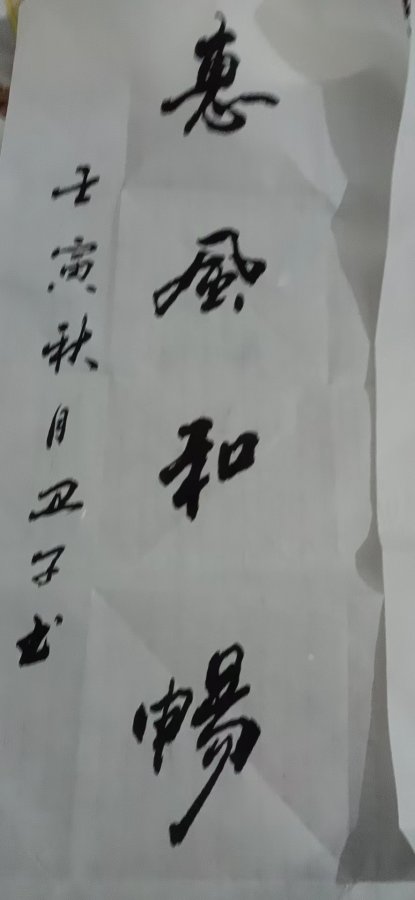 惠風和暢
壬寅秋月丑子书